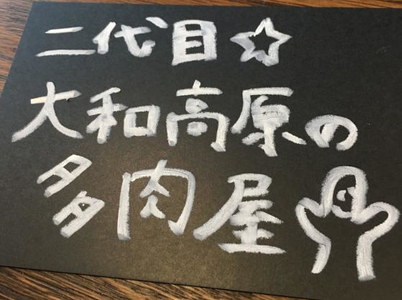 二代目☆
大和高原の
多肉屋